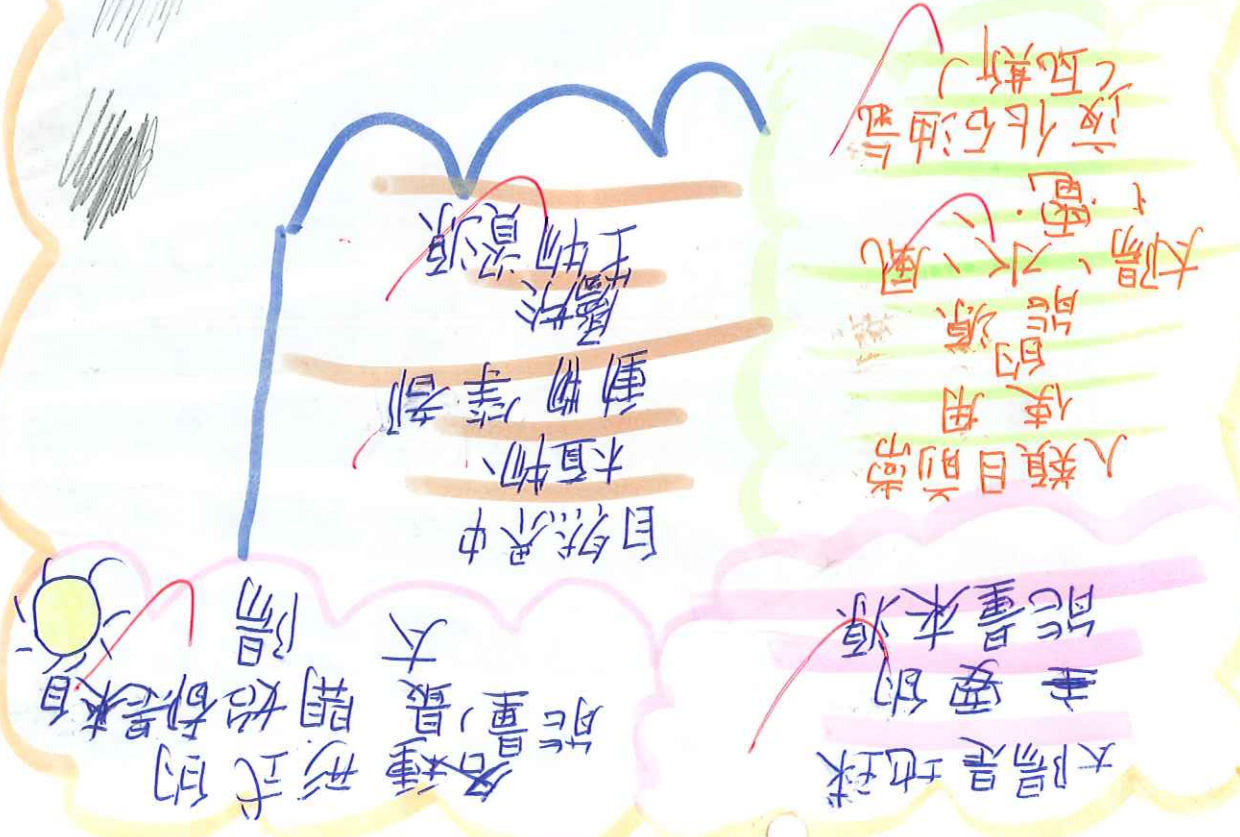 太陽是地球
主要的
能量來源
各種形式的
能量,最開始都是來自
太陽
人類目前常
使用
的能源
太陽、水、風
、電
液化石油氣
(瓦斯)
自然界中
植物、
動物等都
屬於
生物資源